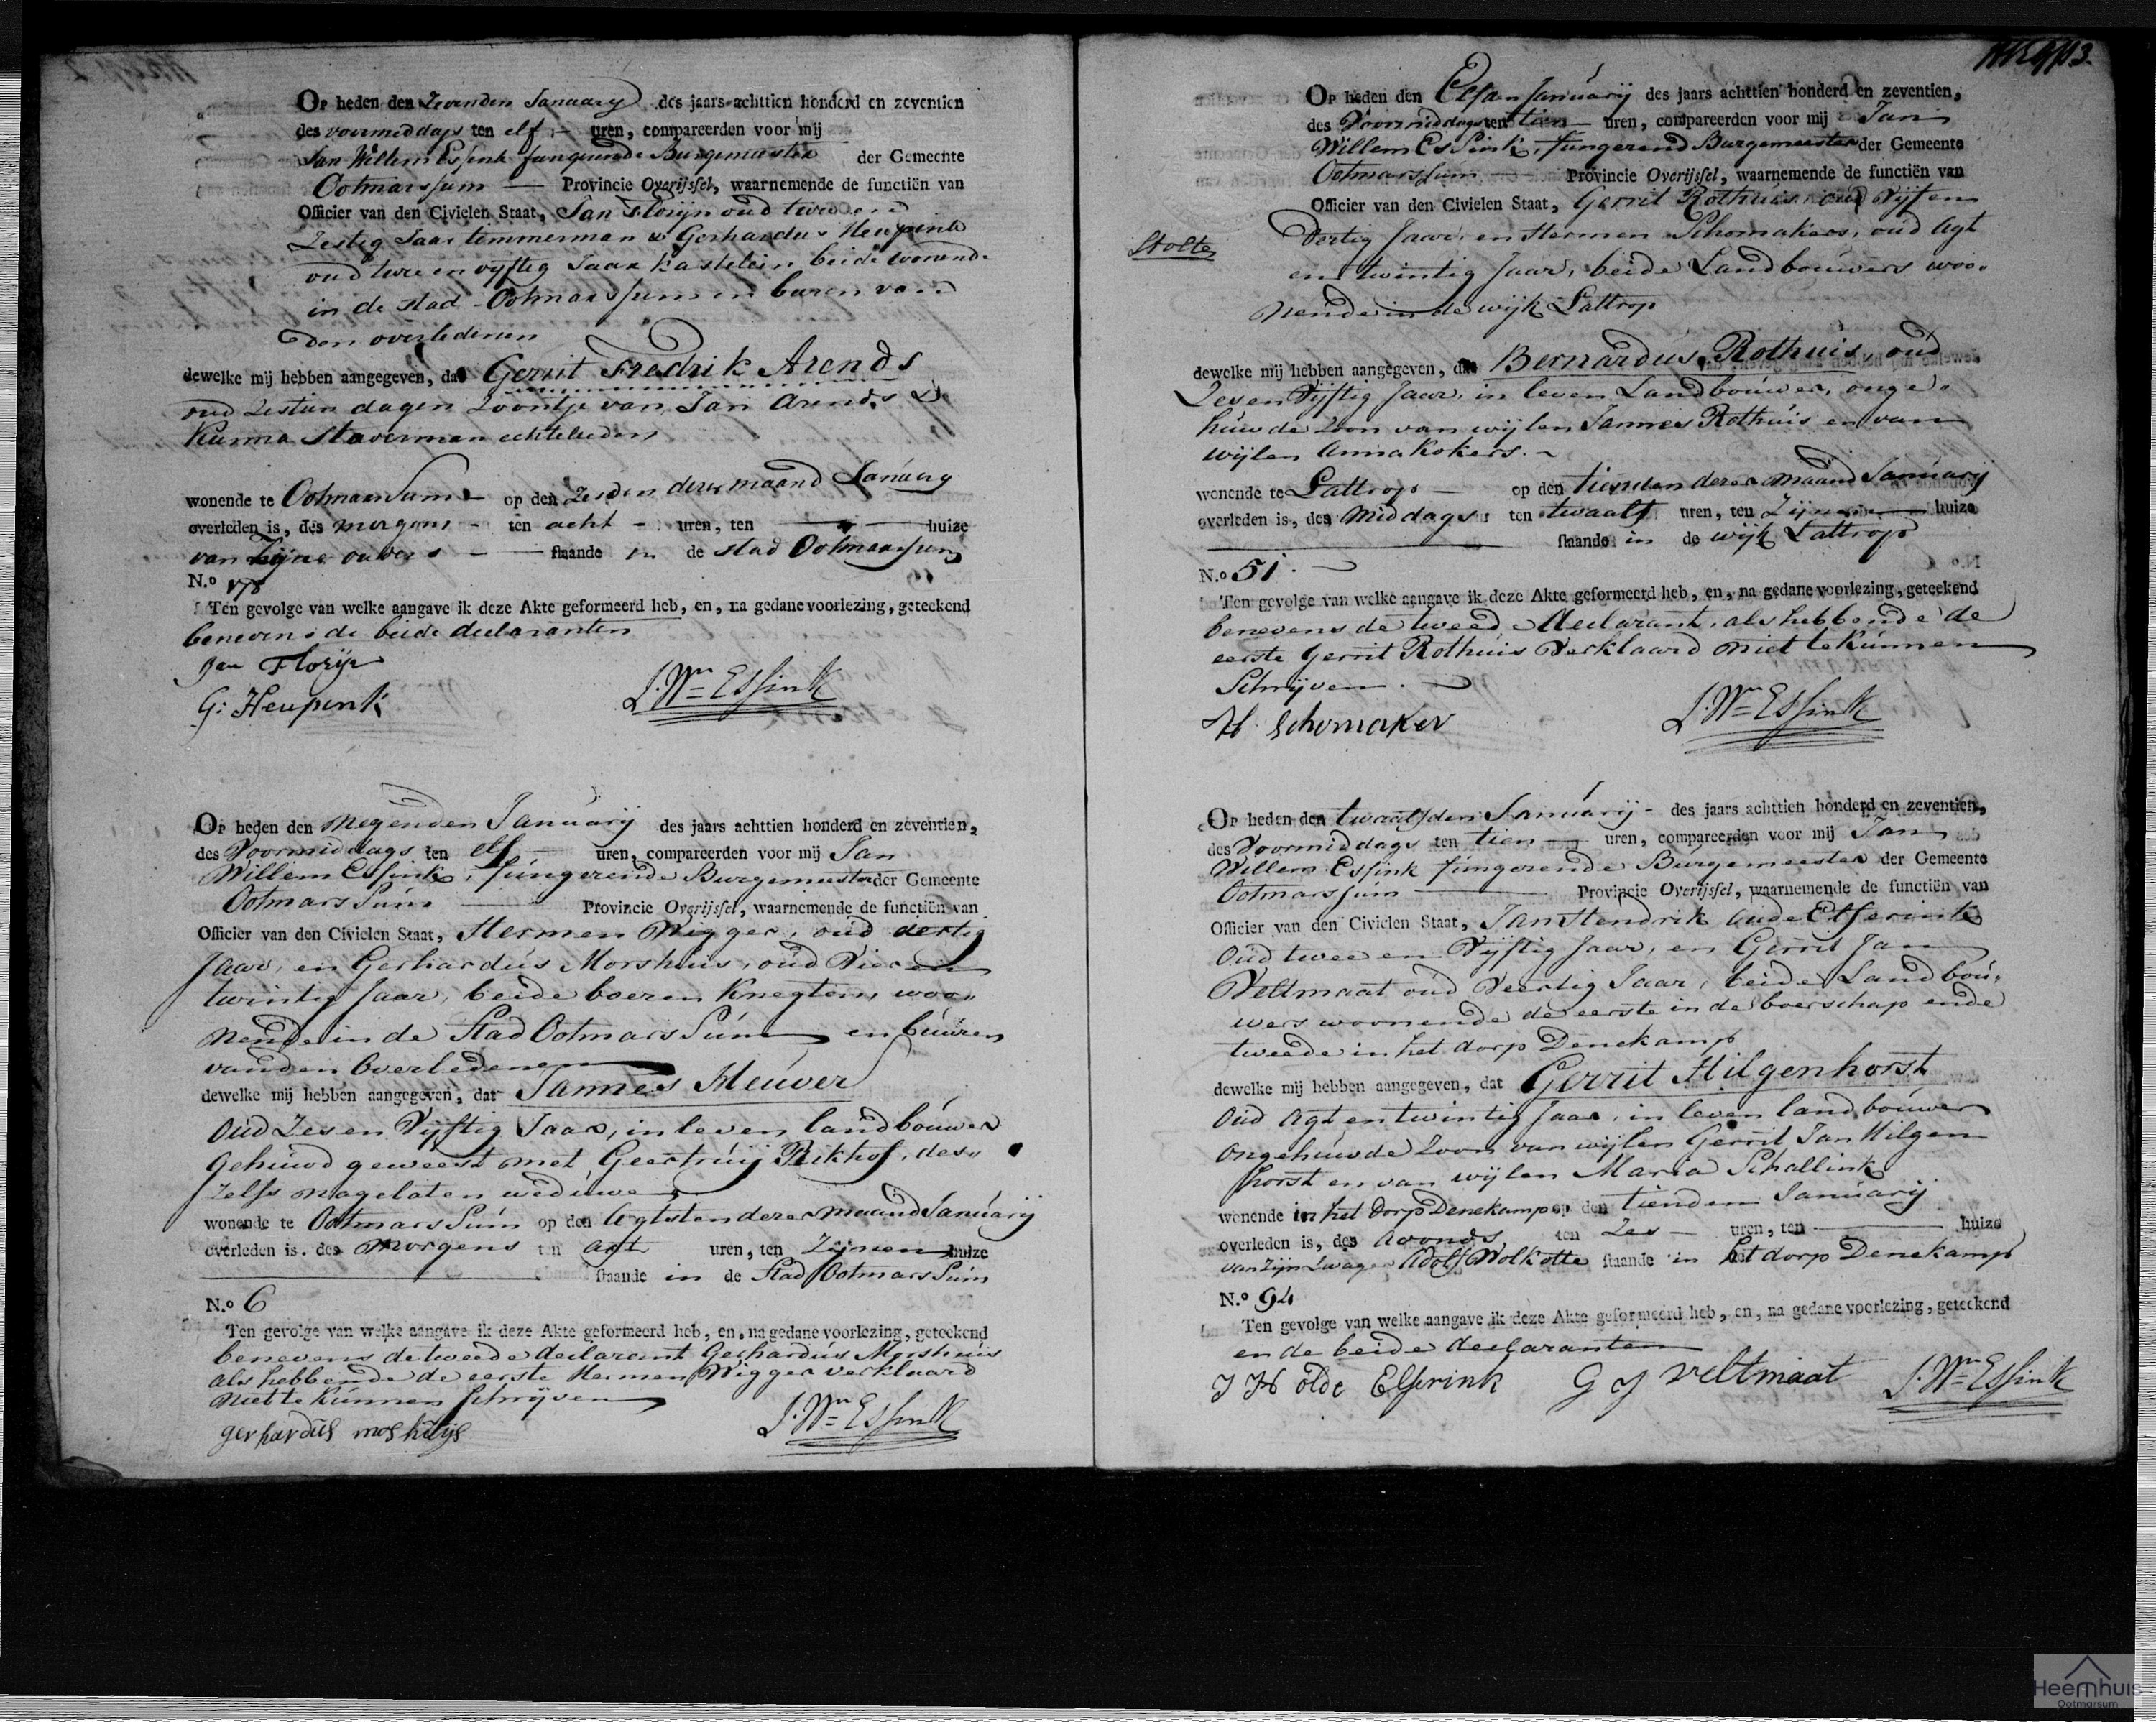 Op heden den Zevenden January des jaars achttien honderd en zeventien
des voormiddags ten elf uren, compareerden voor mij
Jan Willem Essink fungerende Burgemeester der Gemeente
Ootmarssum Provincie Overijssel, waarnemende de functiën van
Officier van den Civielen Staat, Jan Florijn oud twee en
Zestig Jaar timmerman & Gerhardus Heupink
oud twee en vyftig Jaar kastelein beide wonende
in de stad Ootmarssum en buren van
den overledenen
dewelke mij hebben aangegeven, dat Gerrit Fredrik Arends
oud Zestien dagen Zoontje van Jan Arends &
Staverman echtelieden
wonende te Ootmarssum op den Zesden dezer maand January
overleden is, des morgens ten acht uren, ten huize
van Zijne ouders staande in de stad Ootmarssum
N.o 178
Ten gevolge van welke aangave ik deze Akte geformeerd heb, en, na gedane voorlezing, geteekend
benevens de beide declaranten
Jan Florijn
G: Heupink J. Wm Essink
Op heden den Negenden Januarij des jaars achttien honderd en zeventien,
des Voormiddags ten elf uren, compareerden voor mij Jan
Willem Essink, fungerende Burgemeester der Gemeente
Ootmarssum Provincie Overijssel, waarnemende de functiën van
Officier van den Civielen Staat, Hermen Wigger, oud dertig
Jaar, en Gerhardus Morshuis, oud Vier en
twintig Jaar, beide boeren Knegten, woo„
nende in de Stad Ootmarssum en buuren
van den Overledenen
dewelke mij hebben aangegeven, dat Jannes Meuver
Oud Zes en Vijftig Jaar, in leven landbouwer
Gehuwd geweest met Geertruij Rikhof, des„
Zelfs nagelaten weduwe
wonende te Ootmarssum op den Agtsten dezer maand Januarij
overleden is. des Morgens ten agt uren, ten Zijnen huize
staande in de Stad Ootmarssum
N.o 6
Ten gevolge van welke aangave ik deze Akte geformeerd heb, en, na gedane voorlezing, geteekend
benevens de tweede declarant Gerhardus Morshuis
als hebbende de eerste Hermen Wigger verklaard
niet te Kunnen Schrijven
gerhardus moshuijs J. Wm Essink
Op heden den Elfden Januarij des jaars achttien honderd en zeventien,
des Voormiddags ten tien uren, compareerden voor mij Jan
Willem Essink, fungerend Burgemeester der Gemeente
Ootmarssum Provincie Overijssel, waarnemende de functiën van
Officier van den Civielen Staat, Gerrit Rothuis oud Vijf en
Dertig Jaar, en Hermen Schomakers, oud Agt
Stolte
en twintig Jaar, beide Landbouwers woo„
nende in de wijk Lattrop
dewelke mij hebben aangegeven, dat Bernardus Rothuis, oud
Zes en Vijftig Jaar, in leven Landbouwer, onge„
huwde Zoon van wijlen Jannes Rothuis en van
wijlen Anna Kokers.
wonende te Lattrop op den tienden dezer maand Januarij
overleden is, des Middags ten twaalf uren, ten Zijnen huize
staande in de wijk Lattrop
N.o 51
Ten gevolge van welke aangave ik deze Akte geformeerd heb, en, na gedane voorlezing, geteekend
benevens de tweede Declarant, als hebbende de
eerste Gerrit Rothuis Verklaard niet te Kunnen
Schrijven.
H Schomaker J. Wm Essink
Op heden den twaalfden Januarij des jaars achttien honderd en zeventien,
des Voormiddags ten tien uren, compareerden voor mij Jan
Willem Essink fungerende Burgemeester der Gemeente
Ootmarssum Provincie Overijssel, waarnemende de functiën van
Officier van den Civielen Staat, Jan Hendrik Oude Elferink
Oud twee en Vijftig Jaar, en Gerrit Jan
Veltmaat oud Veertig Jaar, beide Landbou„
wers woonende de eerste in de boerschap en de
tweede in het dorp Denekamp
dewelke mij hebben aangegeven, dat Gerrit Hilgenhorst
Oud Agt en twintig Jaar, in leven landbouwer
Ongehuwde Zoon van wijlen Gerrit Jan Hilgen
horst en van wijlen Maria Schallink
wonende in het dorp Denekamp op den tienden Januarij
overleden is, des Avonds ten Zes uren, ten huize
van Zijn Zwager Adolf Molkotte staande in het dorp Denekamp
N.o 94
Ten gevolge van welke aangave ik deze Akte geformeerd heb, en, na gedane voorlezing, geteekend
en de beide declaranten
J H olde Elferink G J Veltmaat J. Wm Essink
Heemhuis
Ootmarsum